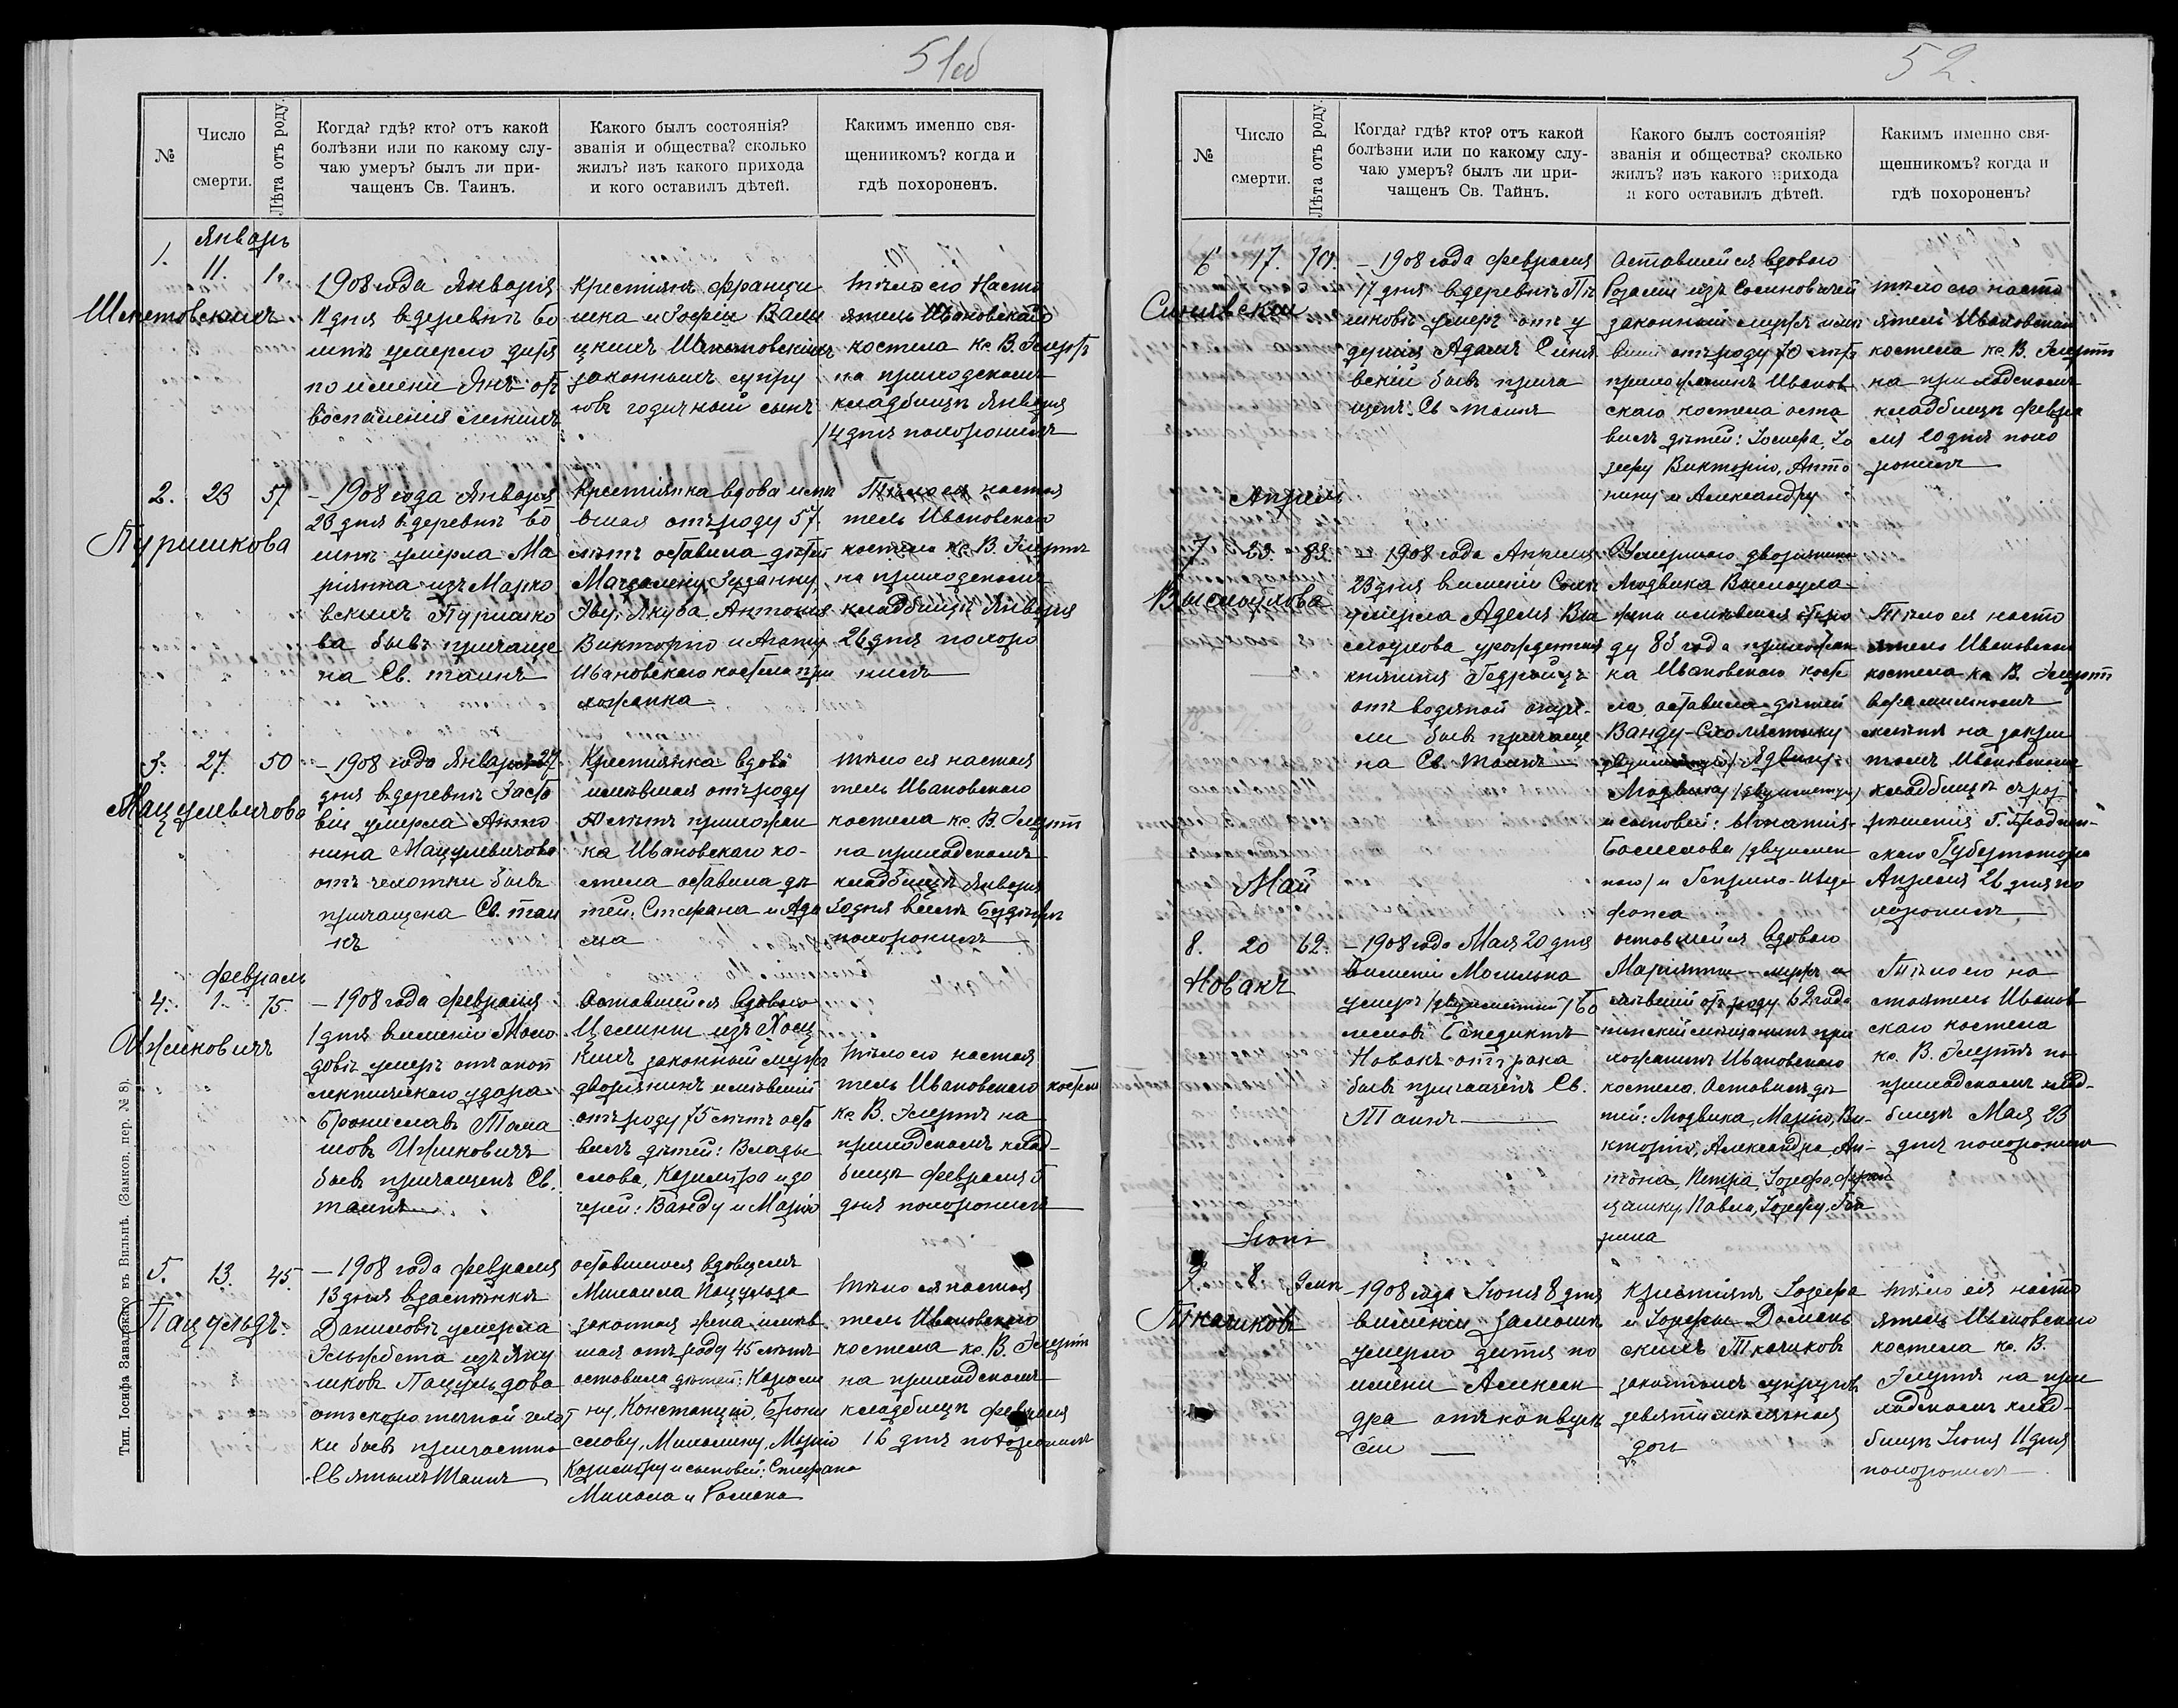 51об
№
Число
смерти.
Лѣта отъ роду.
Когда? гдѣ? кто? отъ какой
болѣзни или по какому слу-
чаю умеръ? былъ ли при-
чащенъ Св. Таинъ.
Какого былъ состоянія?
званія и общества? сколько
жилъ? изъ какого прихода
и кого оставилъ дѣтей.
Какимъ именно свя-
щенникомъ? когда и
гдѣ похороненъ.
1.
Январь
11.
1 г.
1908 года Января
11 дня въ деревнѣ
умерло дитя
по имени Янъ отъ
воспаленія легкихъ
Крестьянъ Франци
шка и Зофіи
законныхъ супру
говъ годичный сынъ
тѣло его Насто
ятель Ивановскаго
костела кс. В.
на приходскомъ
кладбищѣ Января
14 дня похоронилъ
2. 23 57
Пуришкова
– 1908 года Января
23 дня въ деревнѣ
умерла Ма
ріянна изъ Марко
вскихъ Пуришко
ва бывъ причаще
на Св. таинъ
Крестьянка вдова имѣ
вшая отъ роду 57
лѣтъ оставила дѣтей
Магдалену, Зузанну,
Эву, Якуба, Антонія
Викторію и Агату
Ивановскаго костела при
хожанка
Тѣло ея настоя
тель Ивановскаго
костела кс. В.
на приходскомъ
кладбищѣ Января
26 дня похоро
нилъ
3. 27. 50
Мацулевичова
– 1908 года Января 27
дня въ деревнѣ
умерла Анто
нина Мацулевичова
отъ чахотки бывъ
причащена Св. таи
нъ
Крестьянка вдова
имѣвшая отъ роду
лѣтъ прихожан
ка Ивановскаго ко-
стела оставила дѣ
тей: Стефана и Ада
ма
тѣло ея настоя
тель Ивановскаго
костела кс. В.
на приходскомъ
кладбищѣ Января
30 дня
похоронилъ
Февраль
4. 1. 75.
Ижиковичъ
– 1908 года Февраля
1 дня въ имѣніи
умеръ отъ апоп
лектическаго удара
Брониславъ Тома
шовъ Ижиковичъ
бывъ причащенъ Св.
таинъ
Оставшейся вдовою
Целины изъ
кихъ законный мужъ
дворянинъ имѣвшій
отъ роду 75 лѣтъ оста
вилъ дѣтей: Влады
слава, Казимира и до
черей: Ванду и Марію
тѣло его настоя
тель Ивановскаго костела
кс. В. на
приходскомъ клад-
бищѣ Февраля 5
дня похоронилъ
5. 13. 45.
Пацульдъ.
– 1908 года Февраля
13 дня въ застѣнкѣ
Даниловѣ умерла
Эльжбета изъ
Пацульдова
отъ скоротечной чахот
ки бывъ
Святыхъ Таинъ
оставшагося вдовцемъ
Михаила Пацульда
законная жена имѣв
шая отъ роду 45 лѣтъ
оставила дѣтей: Кароли
ну, Констанцію, Брони
славу, Михалину, Марію
Казимиру и сыновей: Стефана
Михала и Романа
тѣло ея настоя
тель Ивановскаго
костела кс. В.
на приходскомъ
кладбищѣ Февраля
16 дня похоронилъ
Тип. Іосифа Завадзкаго въ Вильнѣ. (Замков. пер. № 8).
52.
№
Число
смерти.
Лѣта отъ роду.
Когда? гдѣ? кто? отъ какой
болѣзни или по какому слу-
чаю умеръ? былъ ли при-
чащенъ Св. Тайнъ.
Какого былъ состоянія?
званія и общества? сколько
жилъ? изъ какого прихода
и кого оставилъ дѣтей.
Какимъ именно свя-
щенникомъ? когда и
гдѣ похороненъ?
6 17. 70.
Синявскій
– 1908 года Февраля
17 дня въ деревнѣ
умеръ отъ у
душія Адамъ Синя
вскій бывъ прича
щенъ Св. таинъ
Оставшейся вдовою
Розаліи изъ
законный мужъ имѣ
вшій отъ роду 70 лѣтъ
прихожанинъ Иванов
скаго костела оста
вилъ дѣтей: Іосифа, Іо
зефу Викторію, Анто
нину и Александру
тѣло его насто
ятель Ивановскаго
костела кс. В.
на приходскомъ
кладбищѣ Февра
ля 20 дня похо
ронилъ
Апрель
7 23. 83.
– 1908 года Апреля
23 дня въ имѣніи
умерла Аделя
урожденная
княжна Гедройцъ
отъ водяной
бывъ причаще
на Св. таинъ
Умершаго дворянина
Людвика
жена имѣвшая отъ ро
ду 83 года прихожан
ка Ивановскаго косте
ла оставила дѣтей
Ванду-Схолястику
Ядвигу-
Людвику
и сыновей: Игнатія-
Болеслава
и Генриха-Иде
фонса
Тѣло ея насто
ятель Ивановскаго
костела кс. В.
въ фамильномъ
на закры
томъ Ивановскомъ
кладбищѣ съ раз
рѣшенія Г. Гроднен-
скаго Губернатора
Апреля 26 дня по
хоронилъ
Май
8. 20 62.
Новакъ
– 1908 года Мая 20 дня
въ имѣніи Могильна
умеръ
Бенедиктъ
Новакъ отъ рака
бывъ причащенъ Св.
Таинъ
оставшейся вдовою
Маріянны – мужъ и
мѣвшій отъ роду 62 года
мѣщанинъ при
хожанинъ Ивановскаго
костела. Оставилъ дѣ
тей: Людвика, Марію, Ви-
кторію, Александра, Ан-
тона, Петра, Іозефа, Фран
цишку, Павла, Іозефу,
Тѣло его на
стоятель Иванов
скаго костела
кс. В. на
приходскомъ клад-
бищѣ Мая 23
дня похоронилъ
Іюнь
9. 8 9 мѣс
Ткачиковъ
– 1908 года Іюня 8 дня
въ имѣніи Замошъ
умерло дитя по
имени Алексан
дра отъ конвуль
сіи
Крестьянъ Іозефа
и Іозефы
Ткачиковъ
законныхъ супруговъ
девятимѣсячная
дочь
тѣло ея насто
ятель Ивановскаго
костела кс. В.
на при
ходскомъ клад-
бищѣ Іюня 11 дня
похоронилъ